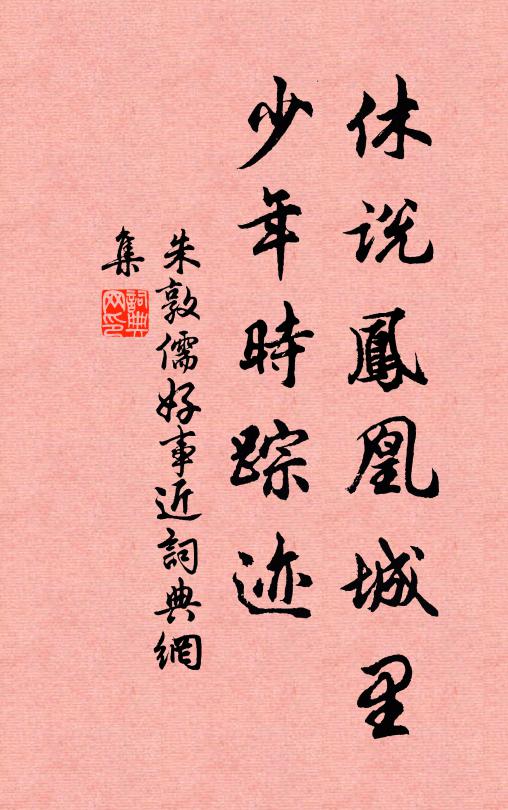 休说鳳凰城里
少年時踪迹
朱敦儒好事近詞典網
集
詞典
网印